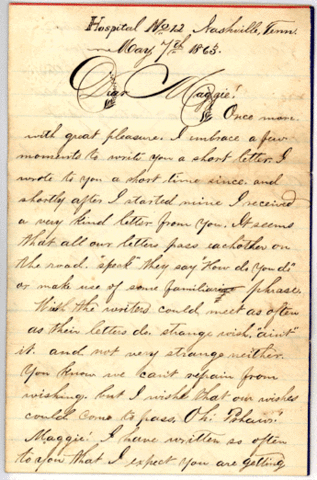 Hospital No 12, Nashville, Tenn.
May 7th 1863.
Dear Maggie!
Once more
with great pleasure. I embrace a few
moments to write you a short letter. I
wrote to you a short time since. and
shortly after I started mine I received
a very kind letter from you. It seems
that all our letters pass eachother on
the road. "speak" they say "How do you do"
or make use of some familiar phrase.
Wish the writers could meet as often
as their letters do. strange wish, "aint"
it. and not very strange neither.
You know we can't refrain from
wishing. but I wish that our wishes
could come to pass. Oh! Pshaw!
Maggie. I have written so often
to you that I expect you are getting